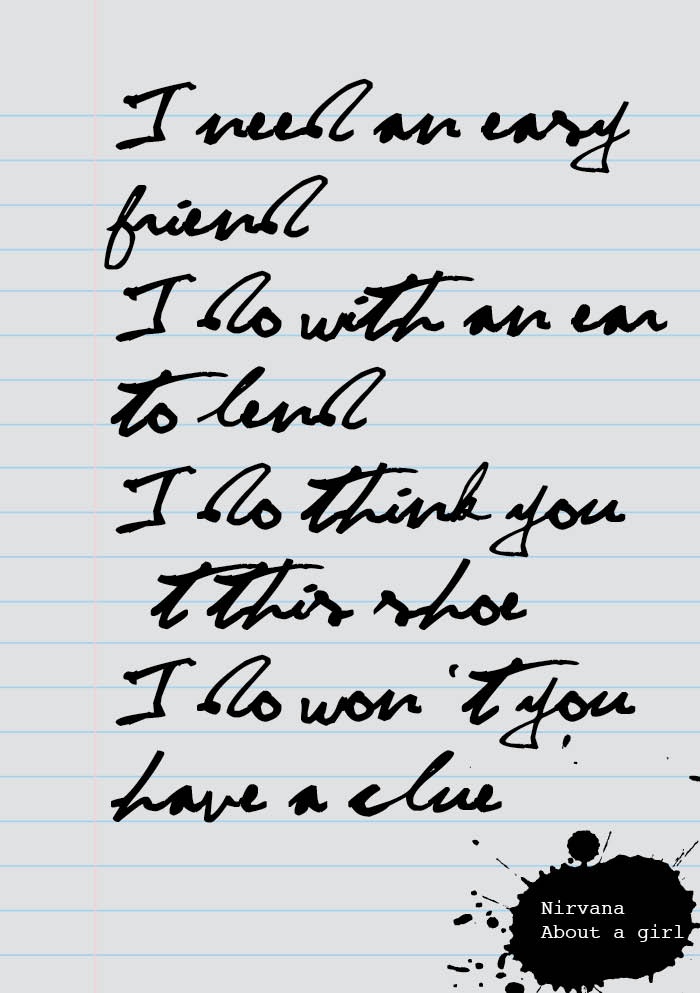 I need an easy
friend
I do with an ear
to lend
I do think you
t this shoe
I do won't you
have a clue
Nirvana
About a girl